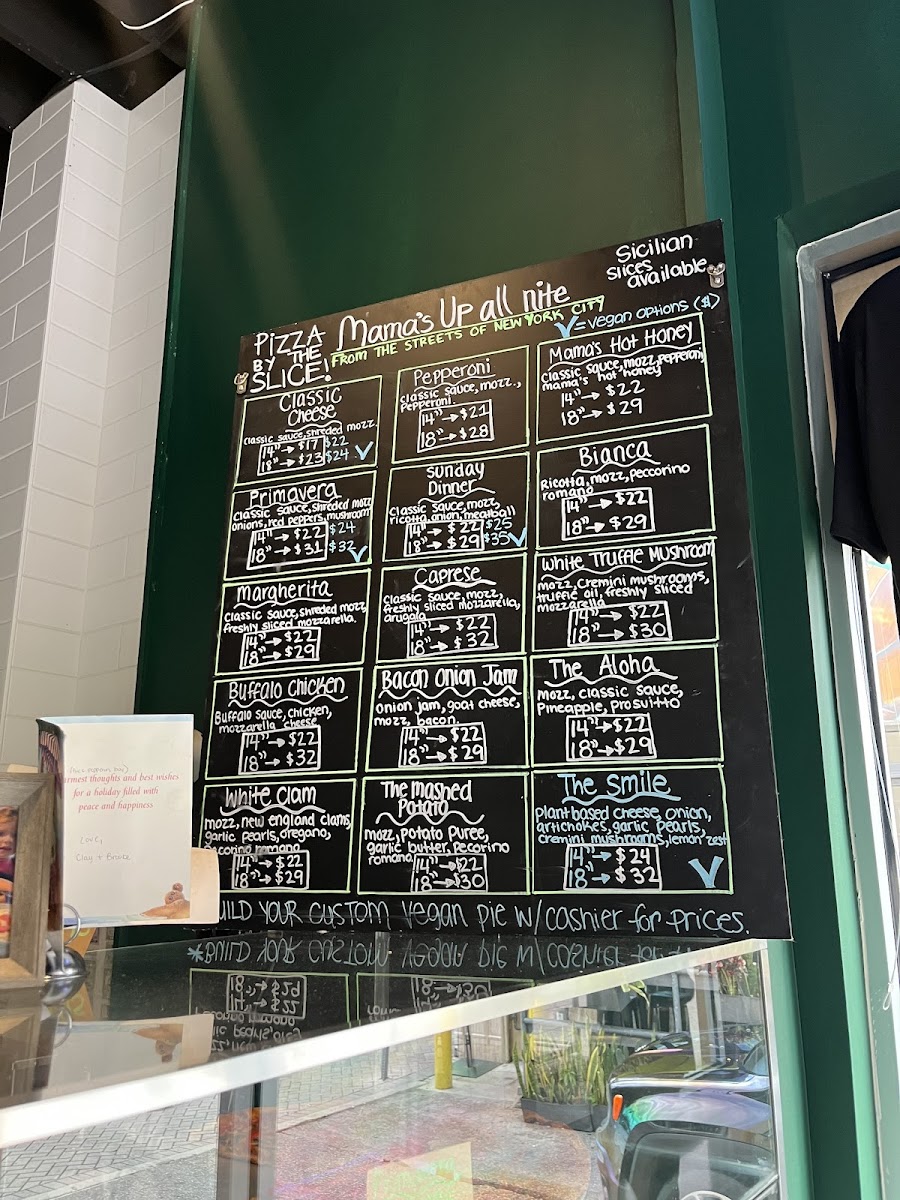 Sicilian
slices
available
PIZZA
BY THE
SLICE!
Mama's Up all nite
FROM THE STREETS OF NEW YORK CITY
V=vegan options ($)
Classic
Cheese
classic sauce, shreded mozz.
14"→$17 $22
18"→$23 $24 V
Pepperoni
classic sauce, mozz.,
Pepperoni.
14"→$21
18"→$28
Mama's Hot Honey
classic sauce, mozz, pepperoni,
mama's hot honey
14"→ $22
18"→ $29
Primavera
classic sauce, shreded mozz
onions, red peppers, mushroom
14"→ $22 $24
18"→ $31 $32 V
Sunday
Dinner
classic sauce, mozz,
ricotta, onion, meatball
14"→ $22 $25
18"→ $29 $35 V
Bianca
Ricotta, mozz, peccorino
romano
14"→ $22
18"→ $29
Margherita
Classic sauce, shreded mozz,
freshly sliced mozzarella.
14"→ $22
18"→ $29
Caprese
classic sauce, mozz,
freshly sliced mozzarella,
arugala
14"→ $22
18"→ $32
White Truffle Mushroom
mozz, cremini mushrooms,
truffle oil, freshly sliced
mozzarella
14"→ $22
18"→ $30
Buffalo Chicken
Buffalo sauce, chicken,
mozzarella cheese
14"→ $22
18"→ $32
Bacon Onion Jam
onion jam, goat cheese,
mozz, bacon.
14"→ $22
18"→ $29
The Aloha
mozz, classic sauce,
Pineapple, Prosuitto
14"→$22
18"→$29
White Clam
mozz, new england clams,
garlic pearls, oregano,
pecorino romano
14"→ $22
18"→ $29
The mashed
Potato
mozz, potato puree,
garlic butter, pecorino
romano
14"→ $22
18"→ $30
The Smile
plant based cheese, onion,
artichokes, garlic pearls,
cremini mushrooms, lemon zest
14"→ $24
18"→ $32 V
BUILD YOUR CUSTOM vegan pie w/cashier for prices.
armest thoughts and best wishes
for a holiday filled with
peace and happiness
Love,